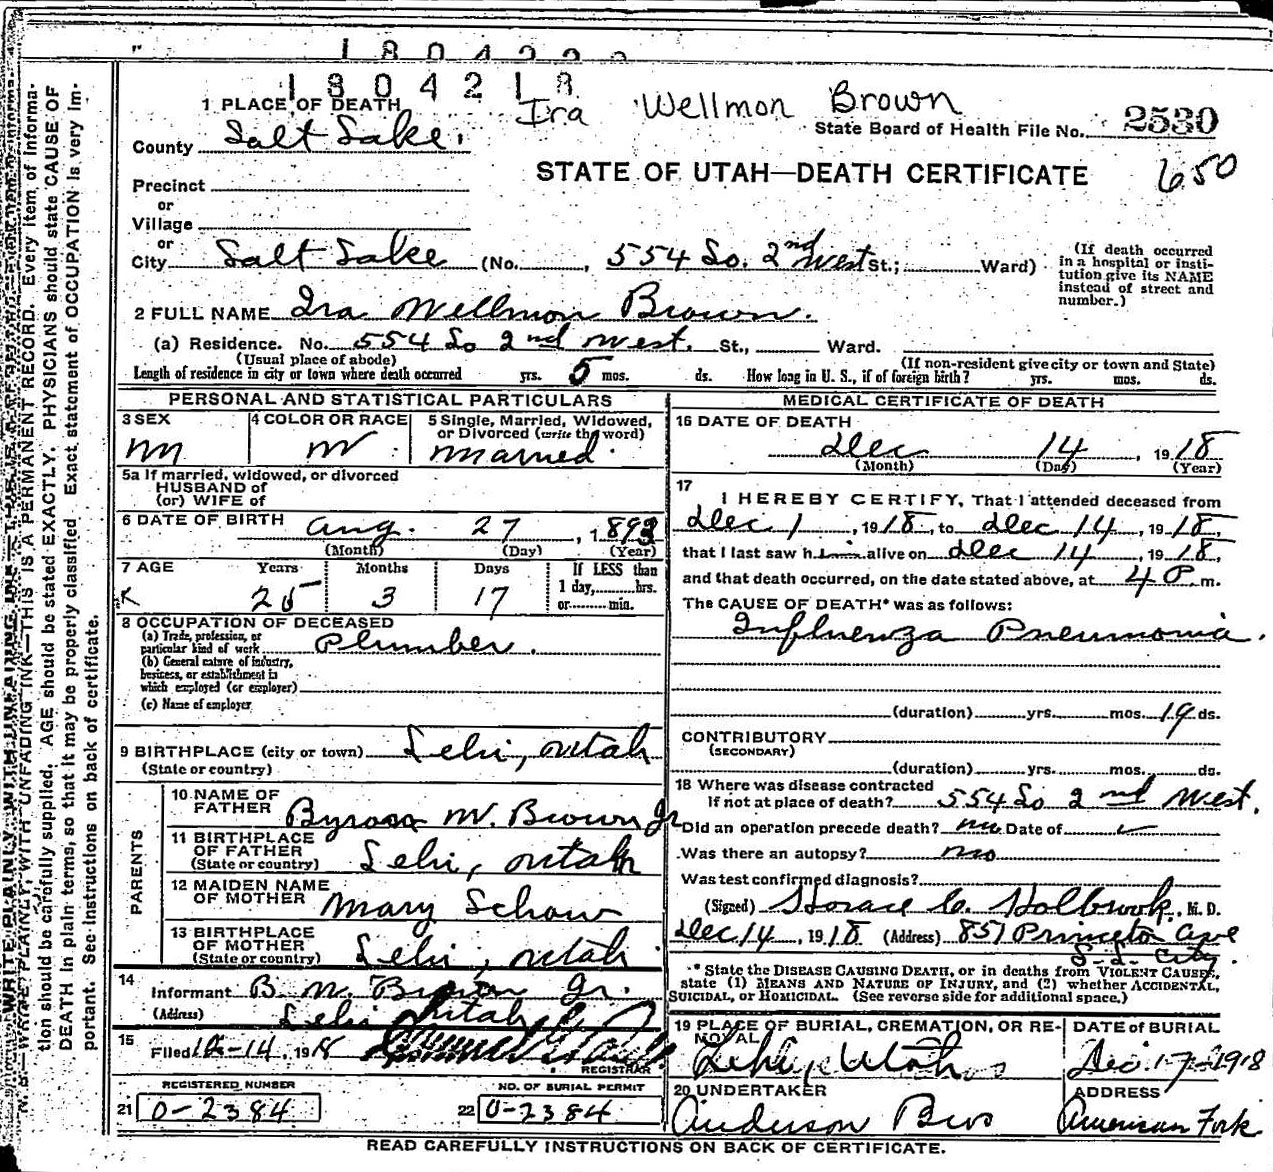 1804218
Ira Wellmon Brown
1 PLACE OF DEATH
State Board of Health File No. 2530
County Salt Lake.
STATE OF UTAH—DEATH CERTIFICATE
650
Precinct
or
Village
or
City Salt Lake (No. , 554 So. 2nd West St.; Ward)
(If death occurred in a hospital or institution give its NAME instead of street and number.)
2 FULL NAME Ira Wellmon Brown.
(a) Residence. No. 554 So 2nd West. St., Ward.
(Usual place of abode) (If non-resident give city or town and State)
Length of residence in city or town where death occurred yrs. 5 mos. ds. How long in U. S., if of foreign birth? yrs. mos. ds.
PERSONAL AND STATISTICAL PARTICULARS
3 SEX 4 COLOR OR RACE 5 Single, Married, Widowed, or Divorced (write the word)
M W Married
5a If married, widowed, or divorced
HUSBAND of
(or) WIFE of
6 DATE OF BIRTH Aug. 27, 1893
(Month) (Day) (Year)
7 AGE Years Months Days If LESS than
1 day, hrs.
or min.
K 25 3 17
8 OCCUPATION OF DECEASED
(a) Trade, profession, or
particular kind of work Plumber.
(b) General nature of industry,
business, or establishment in
which employed (or employer)
(c) Name of employer
9 BIRTHPLACE (city or town) Lehi, Utah
(State or country)
PARENTS
10 NAME OF
FATHER Byron W. Brown Jr
11 BIRTHPLACE
OF FATHER
(State or country) Lehi, Utah
12 MAIDEN NAME
OF MOTHER Mary Schow
13 BIRTHPLACE
OF MOTHER
(State or country) Lehi, Utah
14
Informant B. W. Brown Jr.
(Address) Lehi Utah
15
Filed 12-14, 1918
REGISTRAR
REGISTERED NUMBER NO. OF BURIAL PERMIT
21 0-2384 22 0-2384
MEDICAL CERTIFICATE OF DEATH
16 DATE OF DEATH
Dec 14, 1918
(Month) (Day) (Year)
17
I HEREBY CERTIFY, That I attended deceased from
Dec 1, 1918, to Dec 14, 1918,
that I last saw him alive on Dec 14, 1918,
and that death occurred, on the date stated above, at 4 P. m.
The CAUSE OF DEATH* was as follows:
Influenza Pneumonia.
(duration) yrs. mos. 14 ds.
CONTRIBUTORY
(SECONDARY)
(duration) yrs. mos. ds.
18 Where was disease contracted
if not at place of death? 554 So 2nd West.
Did an operation precede death? no Date of
Was there an autopsy? no
Was test confirmed diagnosis?
(Signed) Horace C. Holbrook, M. D.
Dec 14, 1918 (Address) 851 Princeton Ave
S. L. City.
* State the DISEASE CAUSING DEATH, or in deaths from VIOLENT CAUSES,
state (1) MEANS AND NATURE OF INJURY, and (2) whether ACCIDENTAL,
SUICIDAL, or HOMICIDAL. (See reverse side for additional space.)
19 PLACE OF BURIAL, CREMATION, OR REMOVAL DATE of BURIAL
Lehi, Utah Dec. 17-1918
20 UNDERTAKER ADDRESS
Anderson Bros American Fork
READ CAREFULLY INSTRUCTIONS ON BACK OF CERTIFICATE.
N. B.—WRITE PLAINLY, WITH UNFADING INK—THIS IS A PERMANENT RECORD. Every item of information should be carefully supplied. AGE should be stated EXACTLY. PHYSICIANS should state CAUSE OF
DEATH in plain terms, so that it may be properly classified. Exact statement of OCCUPATION is very important. See instructions on back of certificate.